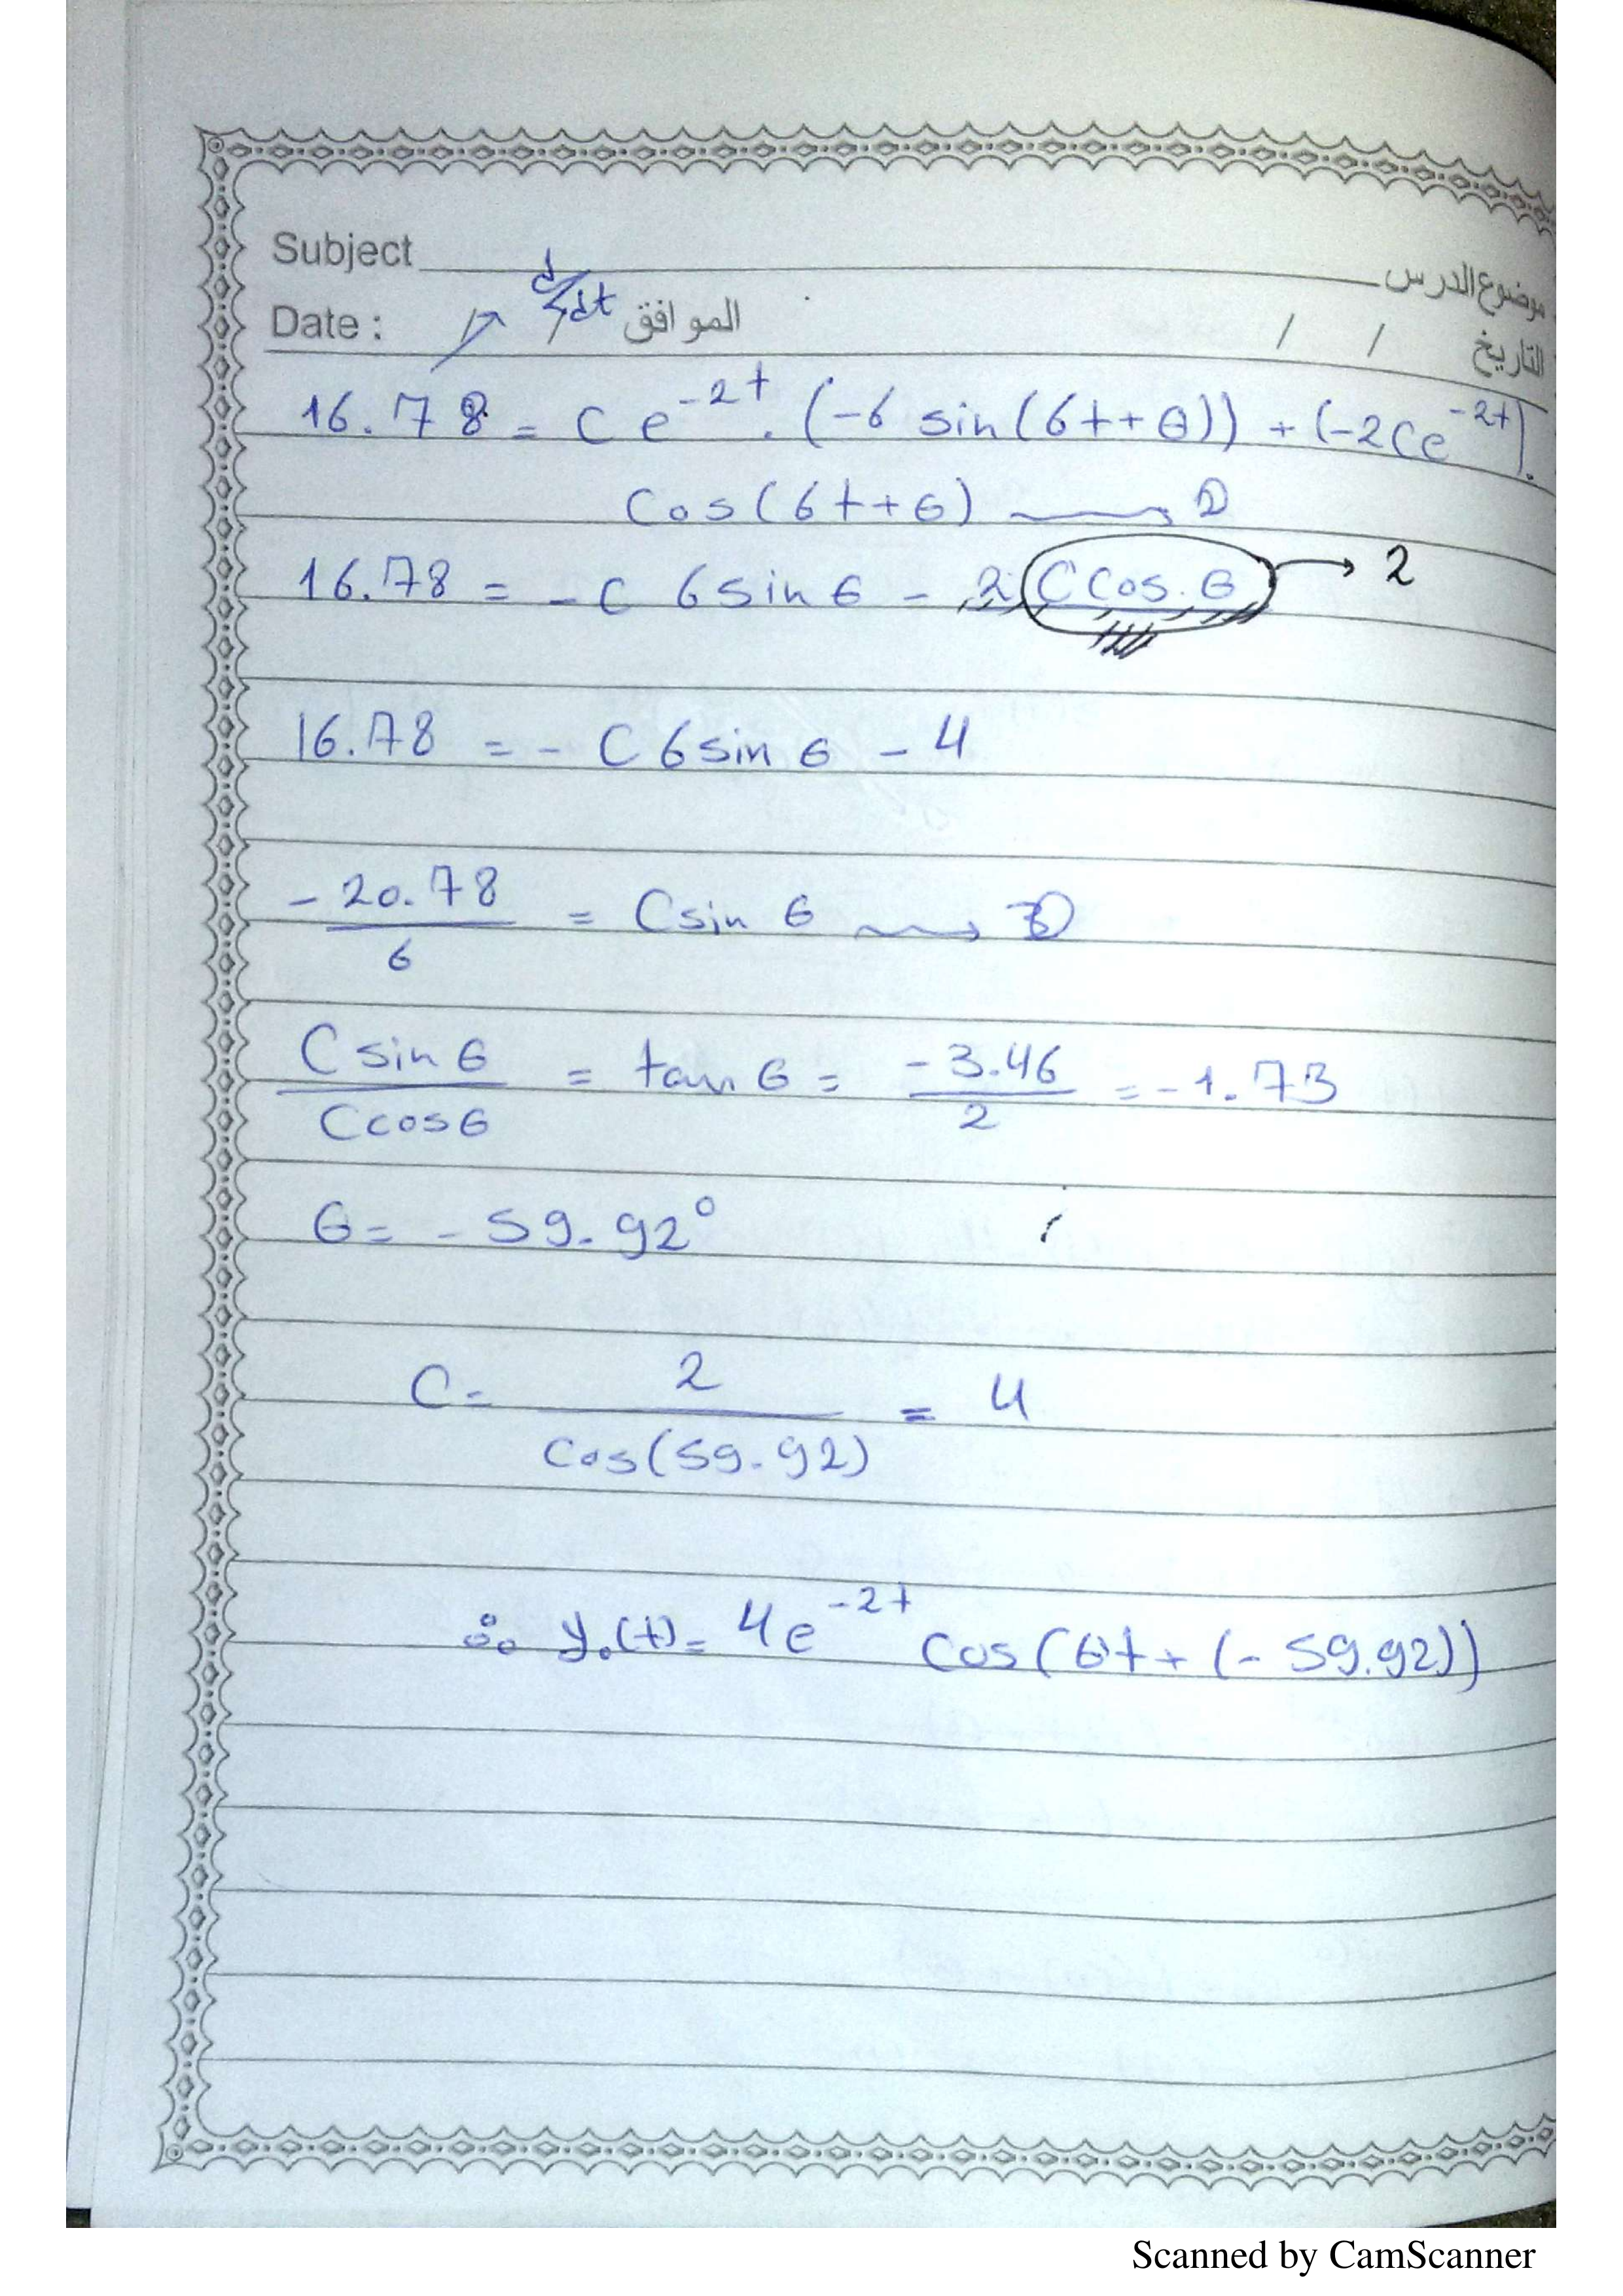 Subject موضوع الدرس
Date : الموافق / / التاريخ
d/dt
16.78 = C e^-2t . (-6 sin(6t+θ)) + (-2Ce^-2t).
Cos(6t+θ) → 2
16.78 = - C 6 sin θ - 2 C Cos. θ → 2
16.78 = - C 6 sin θ - 4
-20.78 / 6 = C sin θ → 3
C sin θ / C cos θ = tan θ = -3.46 / 2 = -1.73
θ = - 59.92°
C = 2 / Cos(59.92) = 4
∴ y₀(t) = 4e^-2t cos(6t + (-59.92))
Scanned by CamScanner